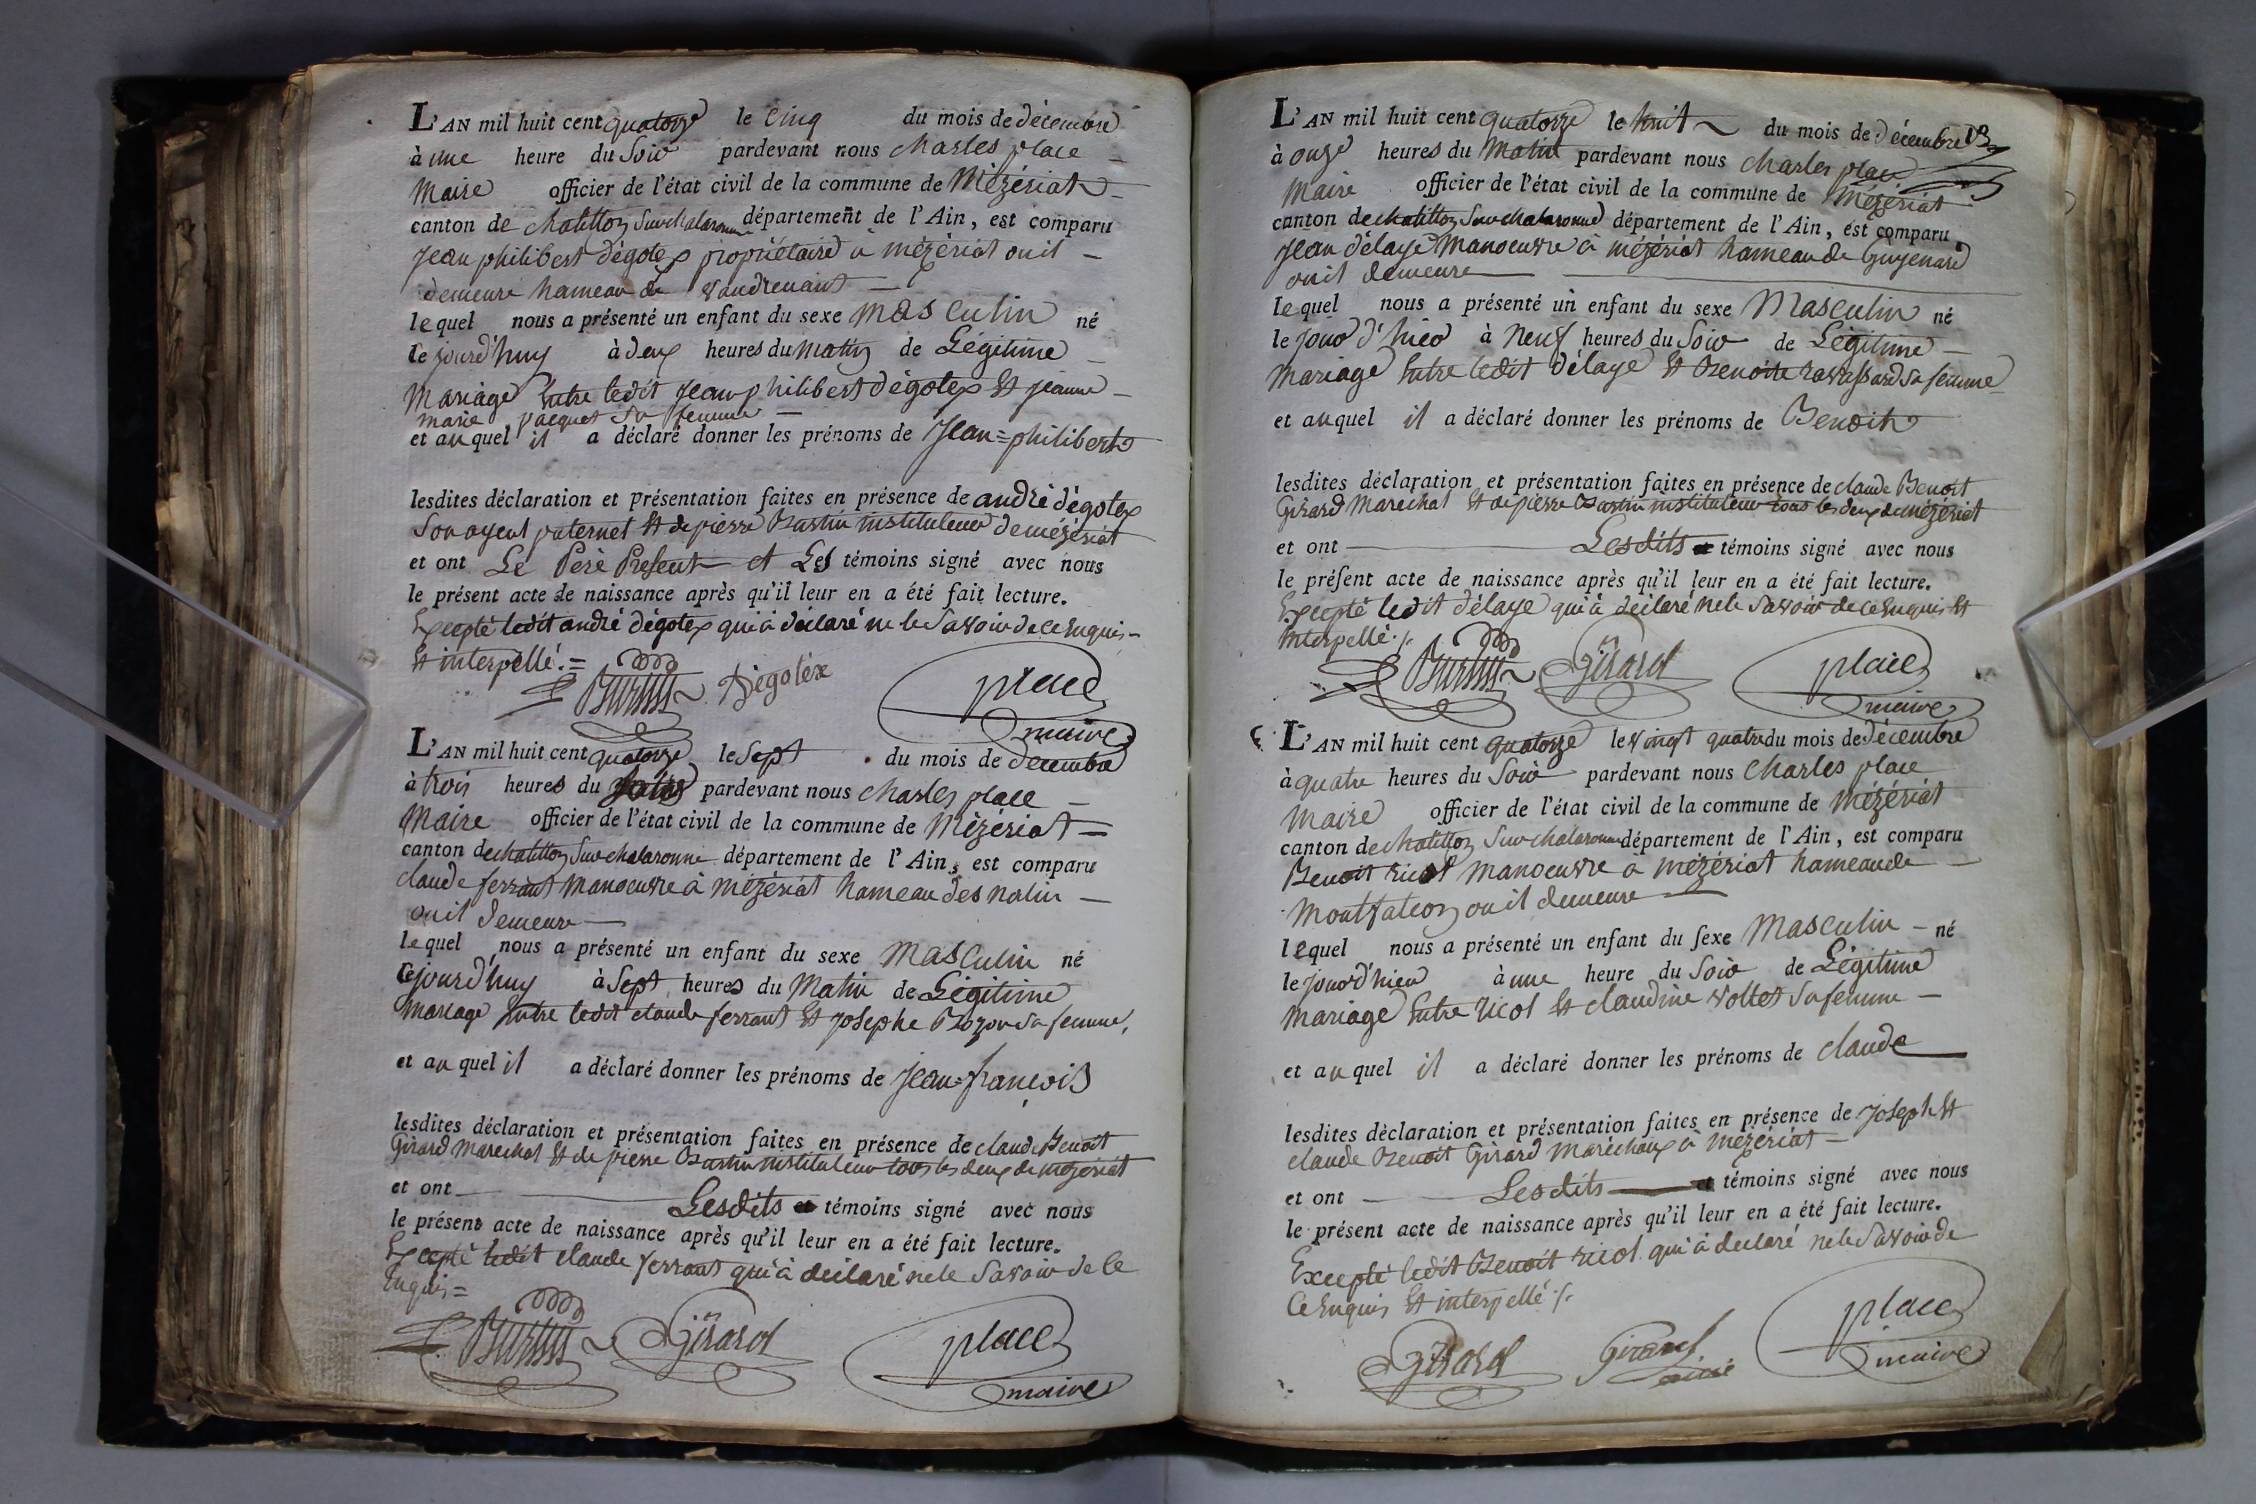 L'AN mil huit cent quatorze le cinq du mois de décembre
à une heure du soir pardevant nous charles place
Maire officier de l'état civil de la commune de Mézériat
canton de chatillon sur chalaronne département de l'Ain, est comparu
jean philibert dégotex propriétaire à mézériat ou il
demeure hameau de
lequel nous a présenté un enfant du sexe masculin né
cejourd'huy à deux heures du matin de Légitime
Mariage Entre ledit jean philibert dégotex Et jeanne
marie pacquet sa femme
et auquel il a déclaré donner les prénoms de jean=philibert
lesdites déclaration et présentation faites en présence de andré dégotex
son ayeul paternel Et de pierre Burtin instituteur de mézériat
et ont Le Père Présent et Les témoins signé avec nous
le présent acte de naissance après qu'il leur en a été fait lecture.
Excepté ledit andré dégotex qui à déclaré ne le Savoir de ce Enquis
Et interpellé.=
Burtin Dégotex place
maire
L'AN mil huit cent quatorze le sept du mois de décembre
à trois heures du pardevant nous charles place
Maire officier de l'état civil de la commune de Mézériat
canton de chatillon sur chalaronne département de l'Ain, est comparu
claude ferrant manoeuvre à mézériat hameau des nalin
ou il demeure
lequel nous a présenté un enfant du sexe masculin né
cejourd'huy à sept heures du Matin de Légitime
mariage Entre ledit claude ferrant Et josephe Bozon sa femme,
et auquel il a déclaré donner les prénoms de jean=françois
lesdites déclaration et présentation faites en présence de claude Benoit
Girard Marechal Et de pierre Burtin instituteur tous les deux de mézériat
et ont Lesdits témoins signé avec nous
le présent acte de naissance après qu'il leur en a été fait lecture.
Excepté ledit claude ferrant qui à déclaré ne le Savoir de ce
Enquis=
Burtin Girard place
maire
L'AN mil huit cent quatorze le huit du mois de décembre
à onze heures du matin pardevant nous charles place
Maire officier de l'état civil de la commune de Mézériat
canton de chatillon sur chalaronne département de l'Ain, est comparu
jean délaye Manoeuvre à mézériat hameau de Guyenard
ou il demeure
lequel nous a présenté un enfant du sexe Masculin né
le jour d'hier à Neuf heures du soir de Légitime
mariage Entre ledit délaye Et Benoite ravassard sa femme
et auquel il a déclaré donner les prénoms de Benoit
lesdites déclaration et présentation faites en présence de claude Benoit
Girard Maréchal Et de pierre Burtin instituteur tous les deux de mézériat
et ont Lesdits témoins signé avec nous
le présent acte de naissance après qu'il leur en a été fait lecture.
Excepté ledit délaye qui à déclaré ne le Savoir de ce Enquis Et
interpellé ./.
Burtin Girard place
maire
L'AN mil huit cent quatorze le vingt quatre du mois de décembre
à quatre heures du soir pardevant nous charles place
Maire officier de l'état civil de la commune de mézériat
canton de chatillon sur chalaronne département de l'Ain, est comparu
Benoit ricol manoeuvre à mézériat hameau de
Montfalcon ou il demeure
lequel nous a présenté un enfant du sexe Masculin né
le jour d'hier à une heure du soir de Légitime
mariage Entre ricol Et claudine vollet sa femme
et auquel il a déclaré donner les prénoms de claude
lesdites déclaration et présentation faites en présence de joseph Et
claude Benoit Girard Maréchaux à mézériat
et ont Lesdits témoins signé avec nous
le présent acte de naissance après qu'il leur en a été fait lecture.
Excepté ledit Benoit ricol qui à déclaré ne le Savoir de
Ce Enquis Et interpellé ./.
Girard Girard place
maire